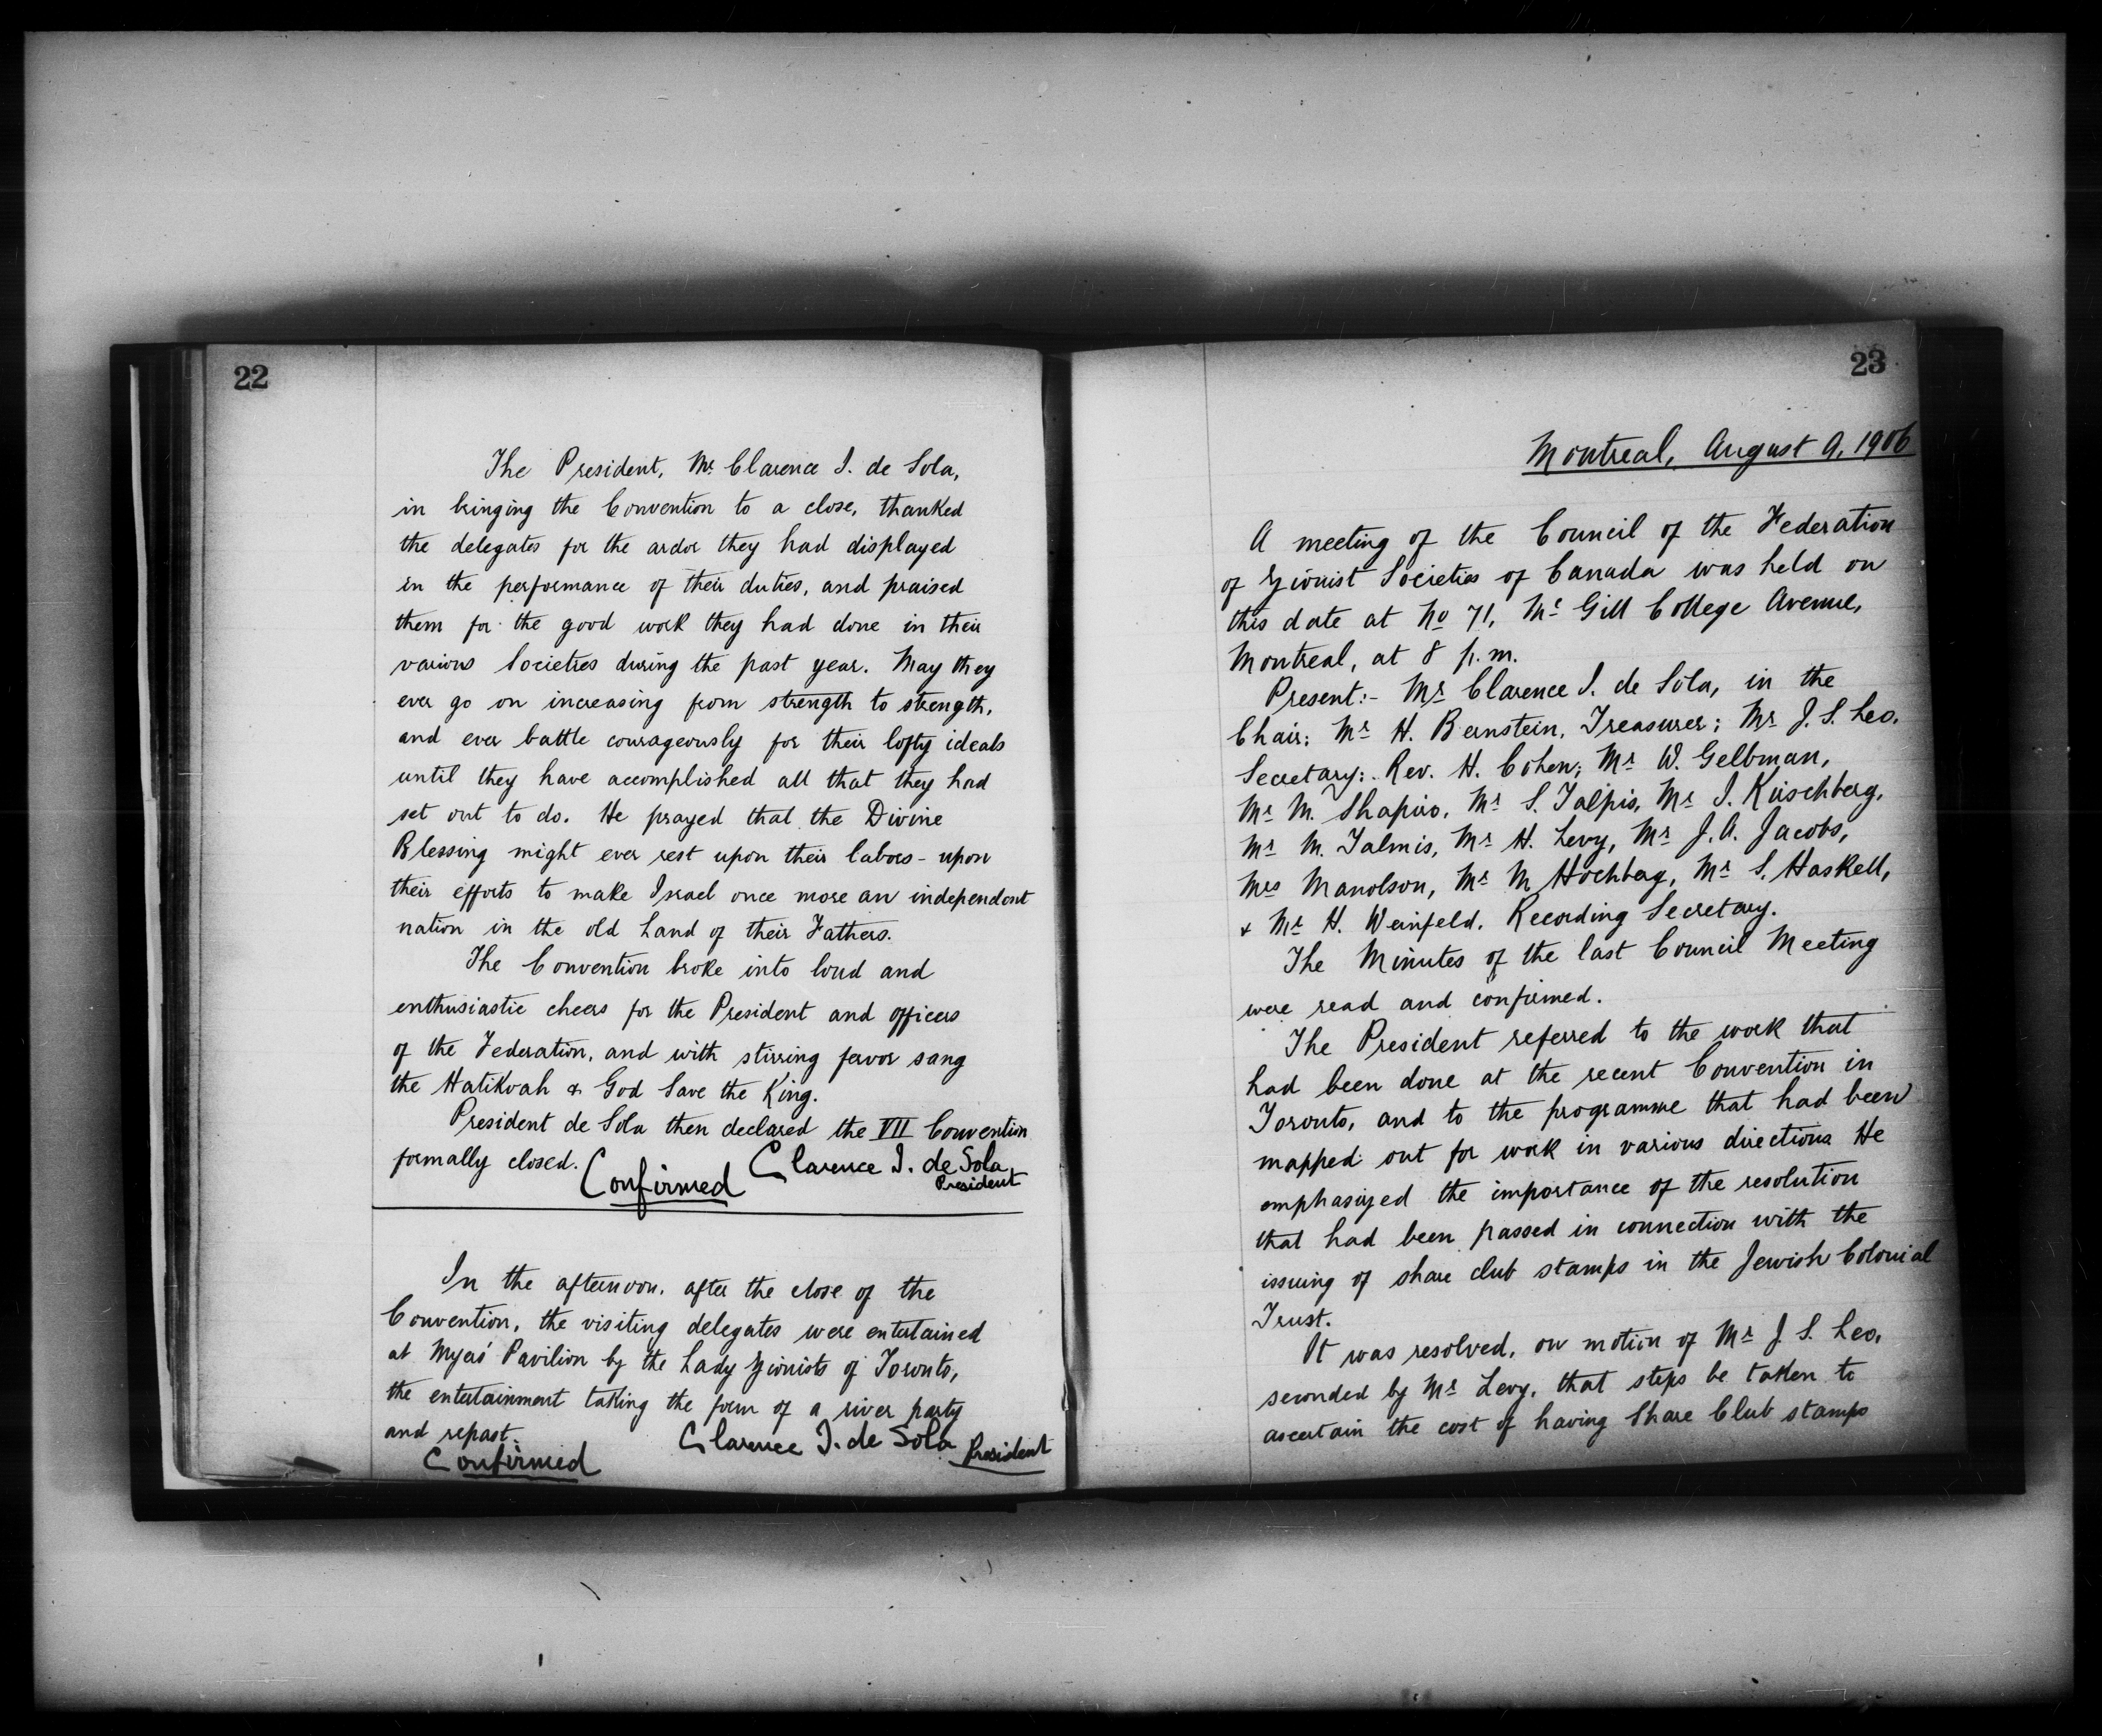 22
The President, Mr. Clarence I. de Sola,
in bringing the Convention to a close, thanked
the delegates for the ardor they had displayed
in the performance of their duties, and praised
them for the good work they had done in their
various Societies during the past year. May they
ever go on increasing from strength to strength,
and ever battle courageously for their lofty ideals
until they have accomplished all that they had
set out to do. He prayed that the Divine
Blessing might ever rest upon their labors - upon
their efforts to make Israel once more an independent
nation in the old Land of their Fathers.
The Convention broke into loud and
enthusiastic cheers for the President and officers
of the Federation, and with stirring fervor sang
the Hatikvah & God Save the King.
President de Sola then declared the VII Convention
formally closed.
Confirmed Clarence I. de Sola,
President
In the afternoon, after the close of the
Convention, the visiting delegates were entertained
at Myers' Pavilion by the Lady Zionists of Toronto,
the entertainment taking the form of a river party
and repast.
Confirmed Clarence I. de Sola President
23
Montreal, August 9, 1906
A meeting of the Council of the Federation
of Zionist Societies of Canada was held on
this date at No 71, Mc Gill College Avenue,
Montreal, at 8 p.m.
Present:- Mr Clarence I. de Sola, in the
Chair; Mr H. Bernstein, Treasurer; Mr J. S. Leo,
Secretary; Rev. H. Cohen; Mr W. Gelbman,
Mr M. Shapiro, Mr S. Talpis, Mr I. Kirschberg,
Mr M. Talmis, Mr H. Levy, Mr J. A. Jacobs,
Mrs Manolson, Mr M Hochberg, Mr S. Haskell,
& Mr H. Weinfeld, Recording Secretary.
The Minutes of the last Council Meeting
were read and confirmed.
The President referred to the work that
had been done at the recent Convention in
Toronto, and to the programme that had been
mapped out for work in various directions He
emphasized the importance of the resolution
that had been passed in connection with the
issuing of share club stamps in the Jewish Colonial
Trust.
It was resolved, on motion of Mr J. S. Leo,
seconded by Mr Levy, that steps be taken to
ascertain the cost of having Share Club stamps